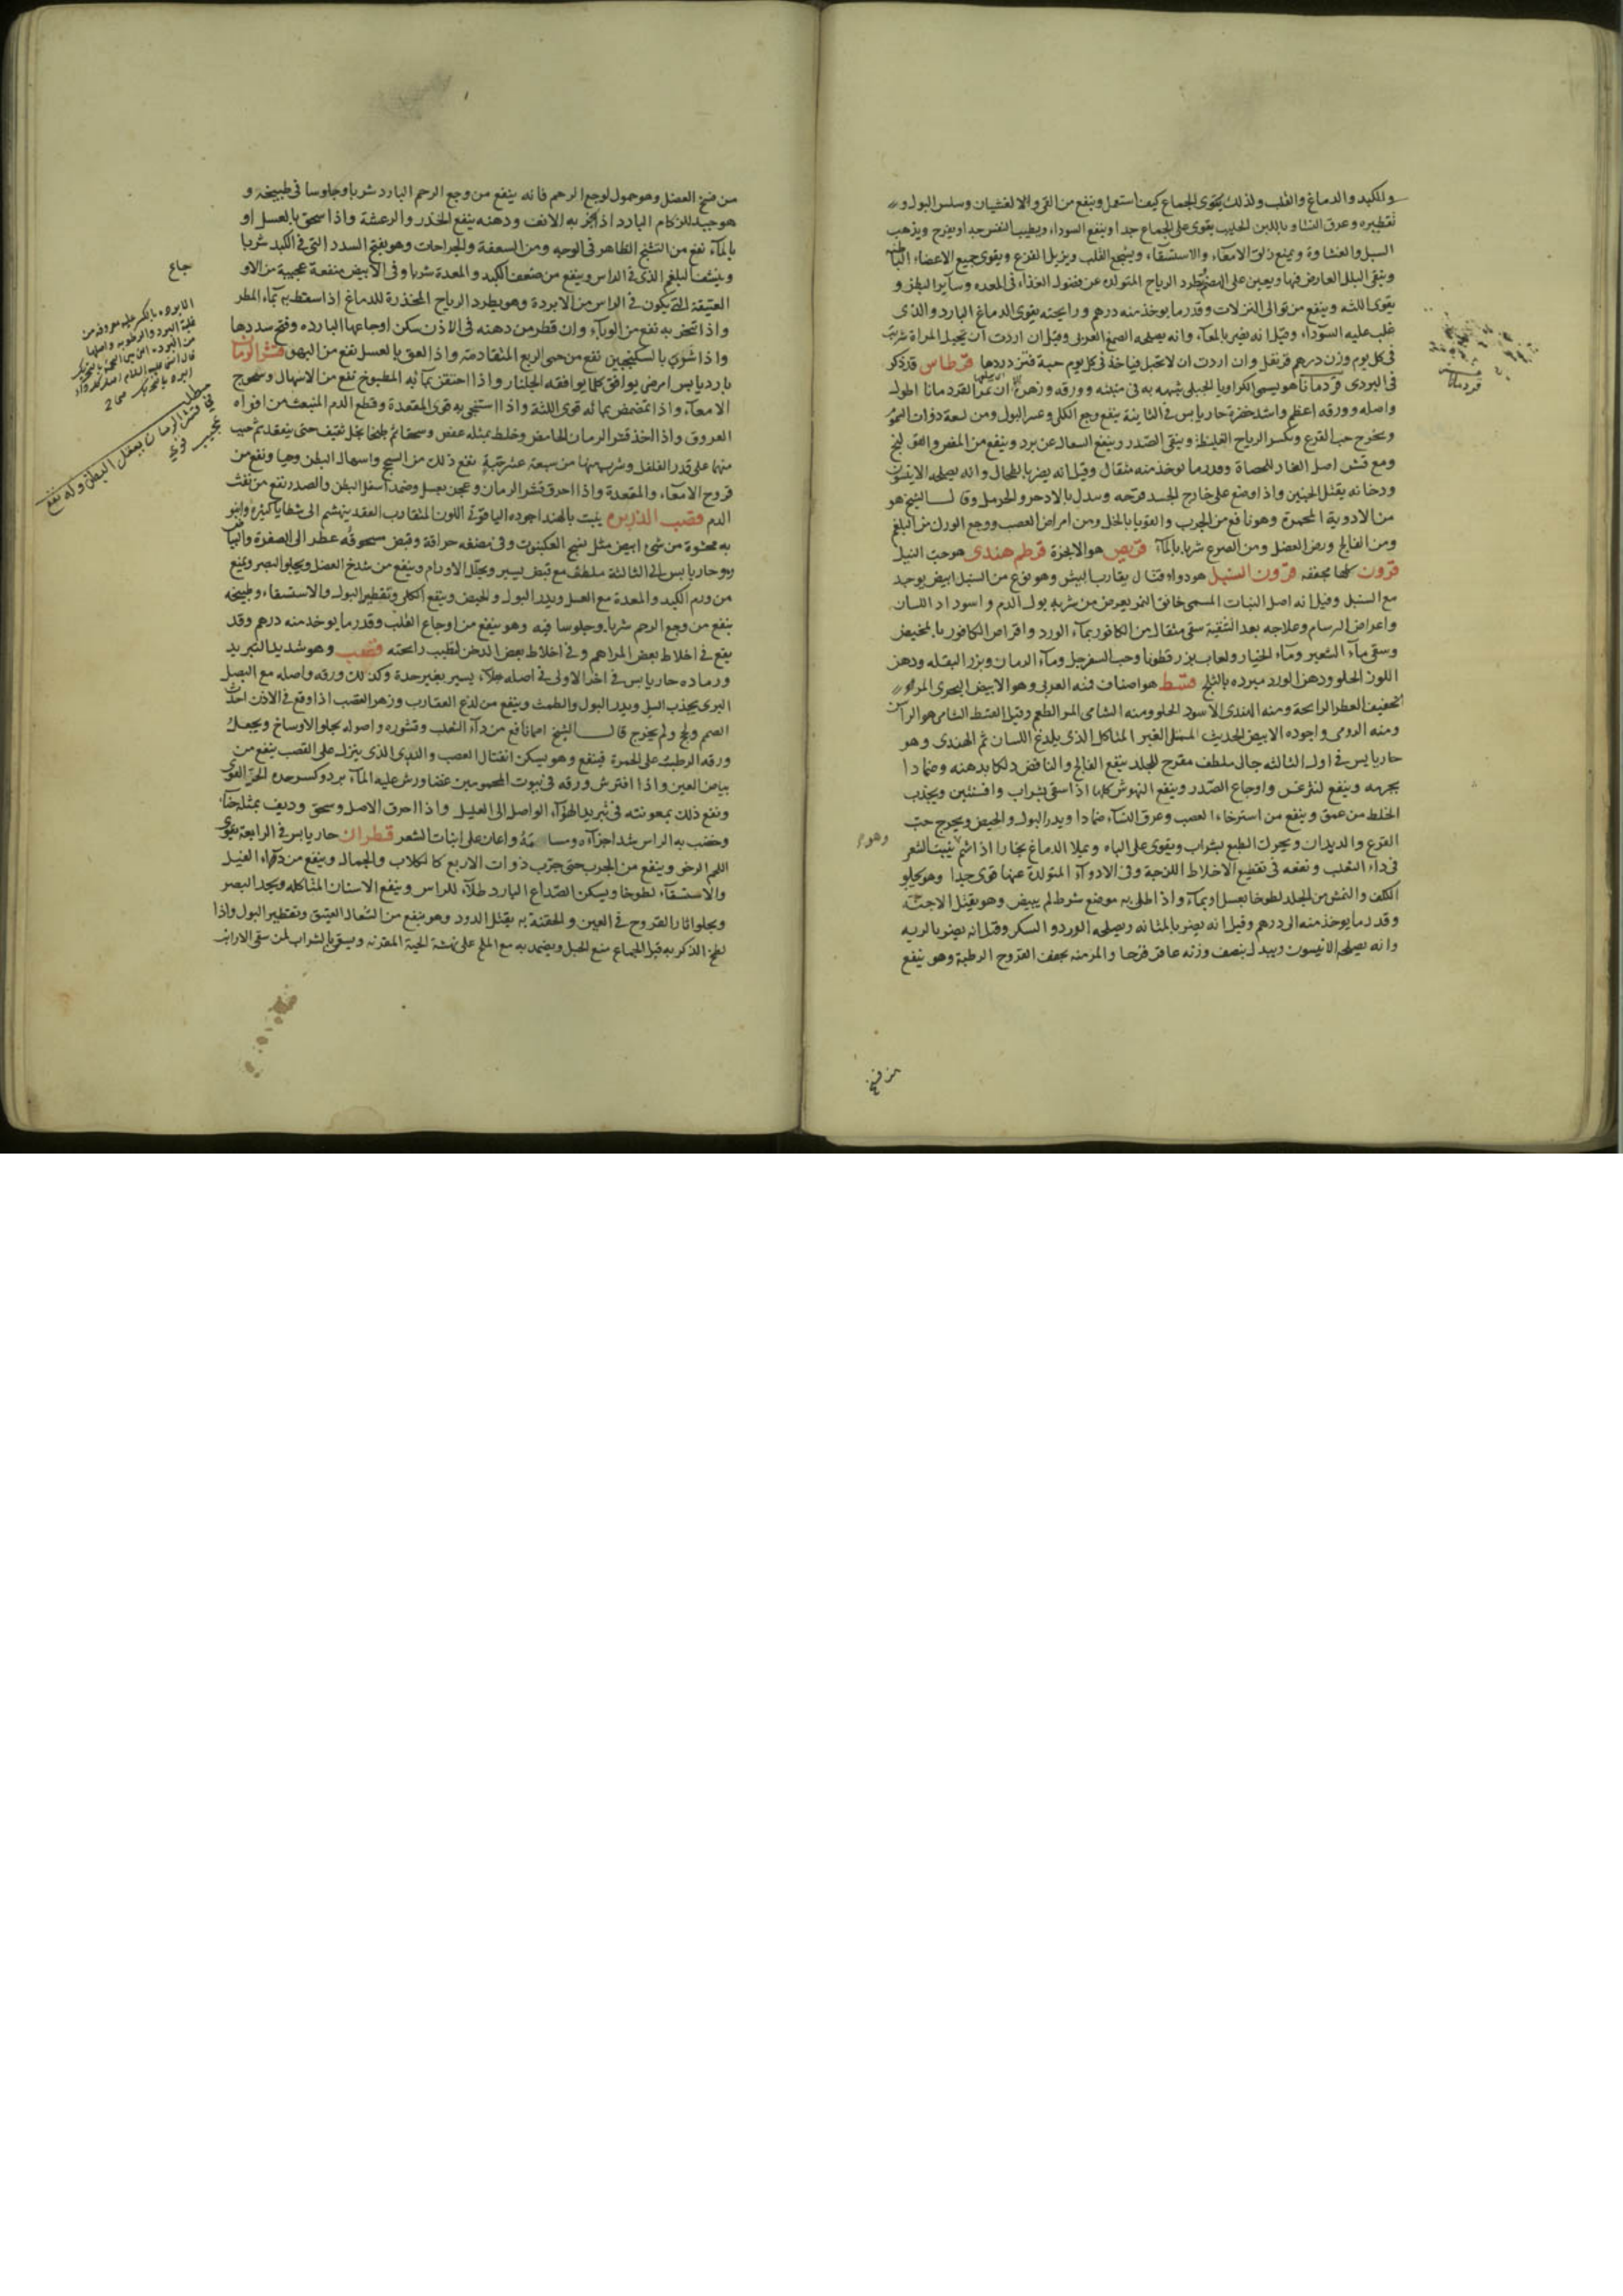 والكبد والدماغ والقلب ولذلك يقوى الجماع كيف استعمل وينفع من القى والا لغثيان وسلس البول و
تقطيره وعرق النسا و باللبن الحليب يقوى على الجماع جدا وينفع السوداء ويطيب النفس جدا ويفرح ويذهب
السبل والغشاوة ويمنع زلق الامعاء والاستسقاء ويشجع القلب ويزيل الفزع ويقوى جميع الاعضاء الباطنه
وينقى البلل العارض فيها ويعين على الهضم ويطرد الرياح المتولده عن فضول الغذاء فى المعده وساير البطن و
يقوى اللثه وينفع من توالى النزلات وقدر ما يوخذ منه درهم ورايحته يقوى الدماغ البارد والذى
غلب عليه السوداء وقيل انه يضر بالمعآء وانه يصلحه الصمغ العربى وقيل ان اردت ان تحبل المراة شربت
فى كل يوم وزن درهم قرنفل وان اردت ان لا تحبل فياخذ فى كل يوم حبة فتزدردها قرطاس قد ذكر
فى البردى قردمانا هو يسمى الكراويا الجبلى شبهه به فى منبته وورقه وزهره الا ان ثمر القردمانا اطول
واصله وورقه اعظم واشد خضرة حار يابس فى الثانية ينفع وجع الكلى وعسر البول ومن لسعة ذوات السموم
ويخرج حب القرع ويكسر الرياح الغليظة وينقى الصدر وينفع السعال عن برد وينفع من المغص والفتق
ومع قشر اصل الغار للحصاة وقدر ما يوخذ منه مثقال وقيل انه يضر بالطحال وانه يصلحه الانيسون
ودخانه يقتل الجنين واذا وضع على خارج الجسد قرحه وبدل بالاذخر والحرمل وقال الشيخ هو
من الادوية المحمرة وهو نافع من الجرب والقوبا بالخل ومن امراض العصب ووجع الورك من البلغم
ومن الفالج ورض العضل ومن الصرع شربا بالمآء قريص هو الانجزة قرطم هندى هو حب النيل
قرون كلها مجففه قرون السنبل هو دواء قتال يقارب البيش وهو نوع من السنبل ابيض يوجد
مع السنبل وقيل انه اصل النبات المسمى خانق النمر يعرض من شربه بول الدم واسوداد اللسان
واعراض البرسام وعلاجه بعد التنقية سقى مثقال من الكافور بمآء الورد واقراص الكافور بالمخيض
وسقى مآء الشعير ومآء الخيار ولعاب بزر قطونا وحب السفرجل ومآء الرمان وبزر البقله ودهن
اللوز الحلو ودهن الورد مبرده بالثلج قسط هو اصناف فنه العربى وهو الابيض البحرى المر
الخفيف العطر الرايحة ومنه الهندى الاسود الحلو ومنه الشامى المر الطعم وقيل القسط الشامى هو الراسن
ومنه الرومى واجوده الابيض الحديث الممتلى الغير المتاكل الذى يلدغ اللسان ثم الهندى وهو
حار يابس فى اول الثالثه جالى ملطف مقرح للجلد ينفع الفالج والنافض دلكا بدهنه وضمادا
بجرمه وينفع ليثرغس واوجاع الصدر وينفع النهوش كلها اذا سقى بشراب وافسنتين ويجذب
الخلط من عمق وينفع من استرخاء العصب وعرق النسآء ضمادا ويدر البول والحيض ويخرج حب
القرع والديدان ويحرك الطبع بشراب ويقوى على الباه ويملا الدماغ بخارا اذا اشتم ينبت الشعر
فى داء الثعلب ونفعه فى تقطيع الاخلاط اللزجة وفى الادوآء المتولدة عنها قوى جيدا وهو يجلو
الكلف والنمش من الجلد لطوخا بعسل او بمآء واذا اطلى به موضع شرط لم يبيض وهو يقتل الاجنه
وقدر ما يوخذ منه الى درهم وقيل انه يضر بالمثانه ويصلحه الورد والسكر وقيل انه يضر بالريه
وانه يصلحه الانيسون ويبدل بنصف وزنه عاقر قرحا والمر منه يجفف القروح الرطبة وهو ينفع
وهو
قردمانا
من فسخ
من فسخ العضل وهو حمول لوجع الرحم فانه ينفع من وجع الرحم البارد شربا وجلوسا فى طبيخه و
هو جيد للزكام البارد اذا بخر به الانف ودهنه ينفع الخدر والرعشة واذا سحق بالعسل او
بالمآء نفع من التشنج الظاهر فى الوجه ومن السعفة والجراحات وهو يفتح السدد التى فى الكبد شربا
وينشف البلغم الذى فى الراس وينفع من ضعف الكبد والمعدة شربا وفى الابيض منفعة عجيبة من الاو
العتيقة التى يكون فى الراس من الابردة وهو يطرد الرياح المخدرة للدماغ اذا استعط به بمآء المطر
واذا تبخر به نفع من الوبآء وان قطر من دهنه فى الاذن سكن اوجاعها البارده وفتح سددها
واذا شرب بالسكنجبين نفع من حمى الربع المتقادمة واذا العق بالعسل نفع من البهق قشر الرمان
بارد يابس امرضى يوافق كلما يوافقه الجلنار واذا احتقن بمآئه المطبوخ نفع من الاسهال وسحوج
الامعآء واذا تمضمض بمائه قوى اللثة واذا استنجى به قوى المقعدة وقطع الدم المنبعث من افواه
العروق واذا اخذ قشر الرمان الحامض وخلط بمثله عفص وسحقا ثم طبخا بخل ثقيف حتى ينعقد ثم حبب
منها على قدر الفلفل وشرب منها من سبعة عشر حبة نفع ذلك من السحج واسهال البطن وحيا ونفع من
قروح الامعآء والمقعدة واذا احرق قشر الرمان وعجن بعسل وضمد اسفل البطن والصدر نفع من نفث
الدم قصب الذريره ينبت بالهند اجوده الياقوتى اللون المتقارب العقد ينهشم الى شظايا كثيرة وانبو
به محشوة من شئ ابيض مثل نسج العنكبوت وفى مضغه حرافة وقبض سحوقه عطر الى الصفرة والبياض
وهو حار يابس الى الثالثة ملطف مع قبض يسير ويحلل الاورام وينفع من شدخ العضل ويجلو البصر وينفع
من ورم الكبد والمعدة مع العسل ويدر البول والحيض وينفع الكلى وتقطير البول والاستسقاء وطبيخه
ينفع من وجع الرحم شربا وجلوسا فيه وهو ينفع من اوجاع القلب وقدر ما يوخذ منه درهم وقد
يقع فى اخلاط بعض المراهم وفى اخلاط بعض الدخن لطيب رائحته قصب وهو شديد التبريد
ورماده حار يابس فى اخر الاولى فى اصله جلاء يسير بغير حدة وكذلك ورقه واصله مع البصل
البرى يجذب السلى ويدر البول والطمث وينفع من لدغ العقارب وزهر القصب اذا وقع فى الاذن احدث
الصمم ولج ولم يخرج قال الشيخ احيانا نافع من دآء الثعلب وقشوره واصوله يجلو الاوساخ ويجعل
ورقه الرطب على الحمرة فينفع وهو يسكن انفتال العصب والندى الذى ينزل على القصب ينفع من
بياض العين واذا افترش ورقه فى بيوت المحمومين غضا ورش عليه المآء برد وكسر حده الحر القوى
ونفع ذلك بمعونته فى تبريد الهوآء الواصل الى العليل واذا احرق الاصل وسحق وديف بمثله حنآء
وخضب به الراس شد اجزآءه ومسامه واعان على انبات الشعر قطران حار يابس فى الرابعة يقوى
اللحم الرخو وينفع من الجرب حتى جرب ذوات الاربع كالكلاب والجمال وينفع من دآء الفيل
والاستسقآء لطوخا ويسكن الصداع البارد طلآء للراس وينفع الاسنان المتاكله ويحد البصر
ويجلو اثار القروح فى العين والحقنة به يقتل الدود وهو ينفع من السعال العتيق وتقطير البول واذا
لطخ الذكر به قبل الجماع منع الحبل ويضمد به مع الملح على نهشة الحية المقرنه ويسقى بالشراب لمن سقى الارانب
جاع
الابرده بالكسر عله معروفه من
غلبة البرد والرطوبه
مطلب
فى قشر الرمان يعقل البطن وله نفع
عجيب قوى